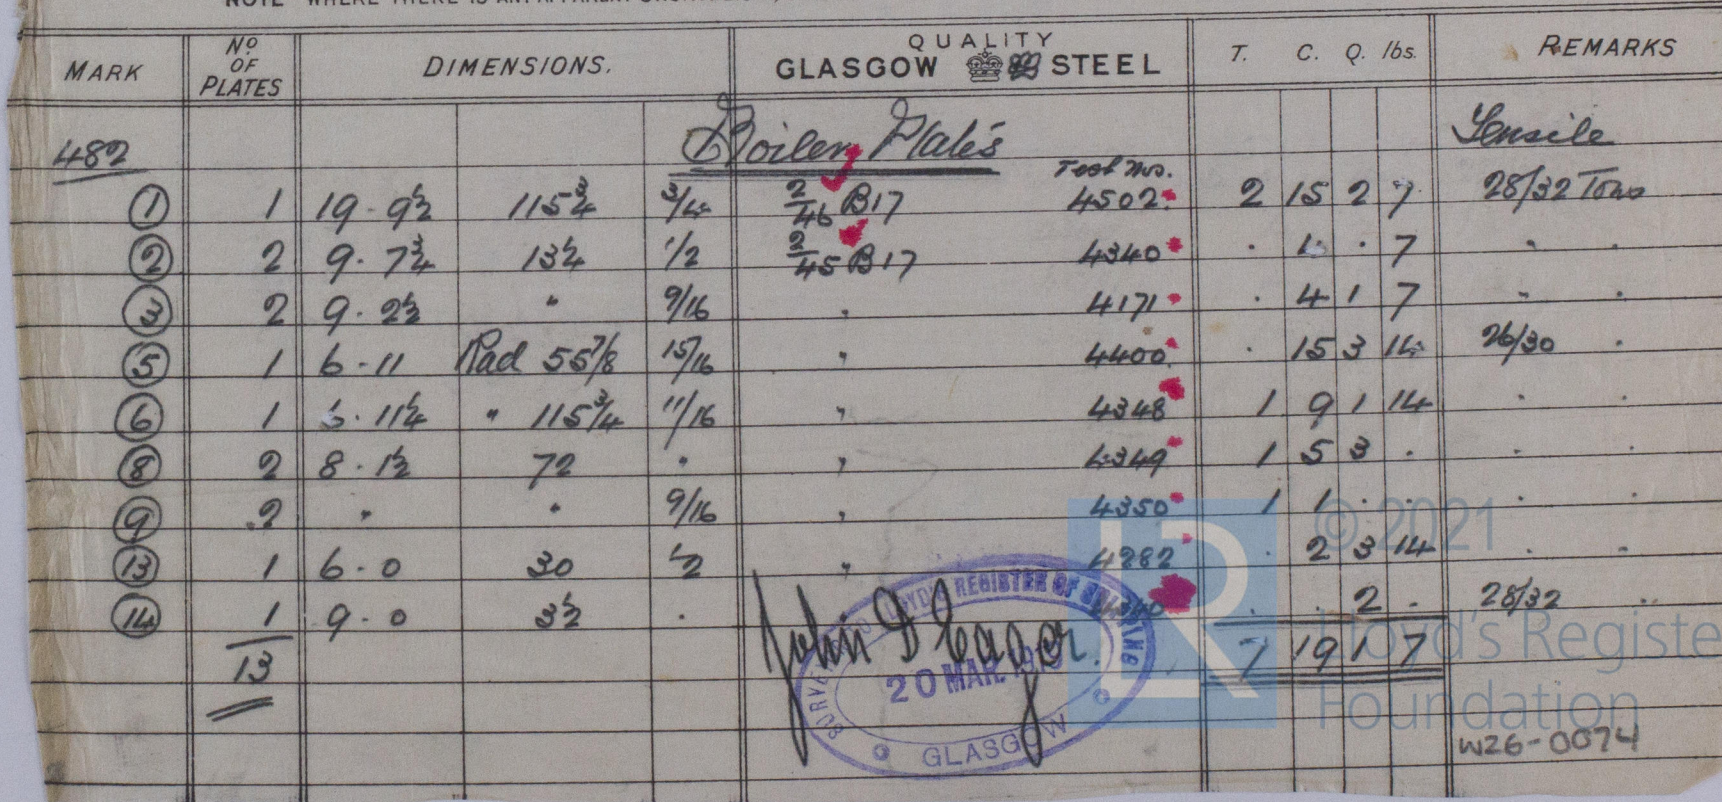 NOTE WHERE THERE IS ANY APPARENT
MARK NO OF PLATES DIMENSIONS. QUALITY GLASGOW STEEL T. C. Q. lbs. REMARKS
482 Boiler Plates Tensile
Test Nos.
1 1 19 · 9½ 115¾ 3/4 2/46 B17 4502 2 15 2 7 28/32 Tons
2 2 9 · 7¾ 13¼ 1/2 2/45 B17 4340 · 1 · 7 " ·
3 2 9 · 2½ " 9/16 " 4171 · 4 1 7 " ·
5 1 6 · 11 Rad 55 7/8 15/16 " 4400 · 15 3 14 26/30 ·
6 1 6 · 11¼ " 115 3/4 11/16 " 4348 1 9 1 14 · ·
8 2 8 · 1½ 72 " " 4349 1 5 3 · · ·
9 2 " " 9/16 " 4350 1 1 · · · ·
13 1 6 · 0 30 ½ " 4282 · 2 3 14 · ·
14 1 9 · 0 3½ · 4340 · · 2 · 28/32 "
13 7 19 1 7
John D Eager.
REGISTER OF SHIPPING
20 MAR
GLASGOW
© 2021
Lloyd's Registe
Foundation
W26-0074